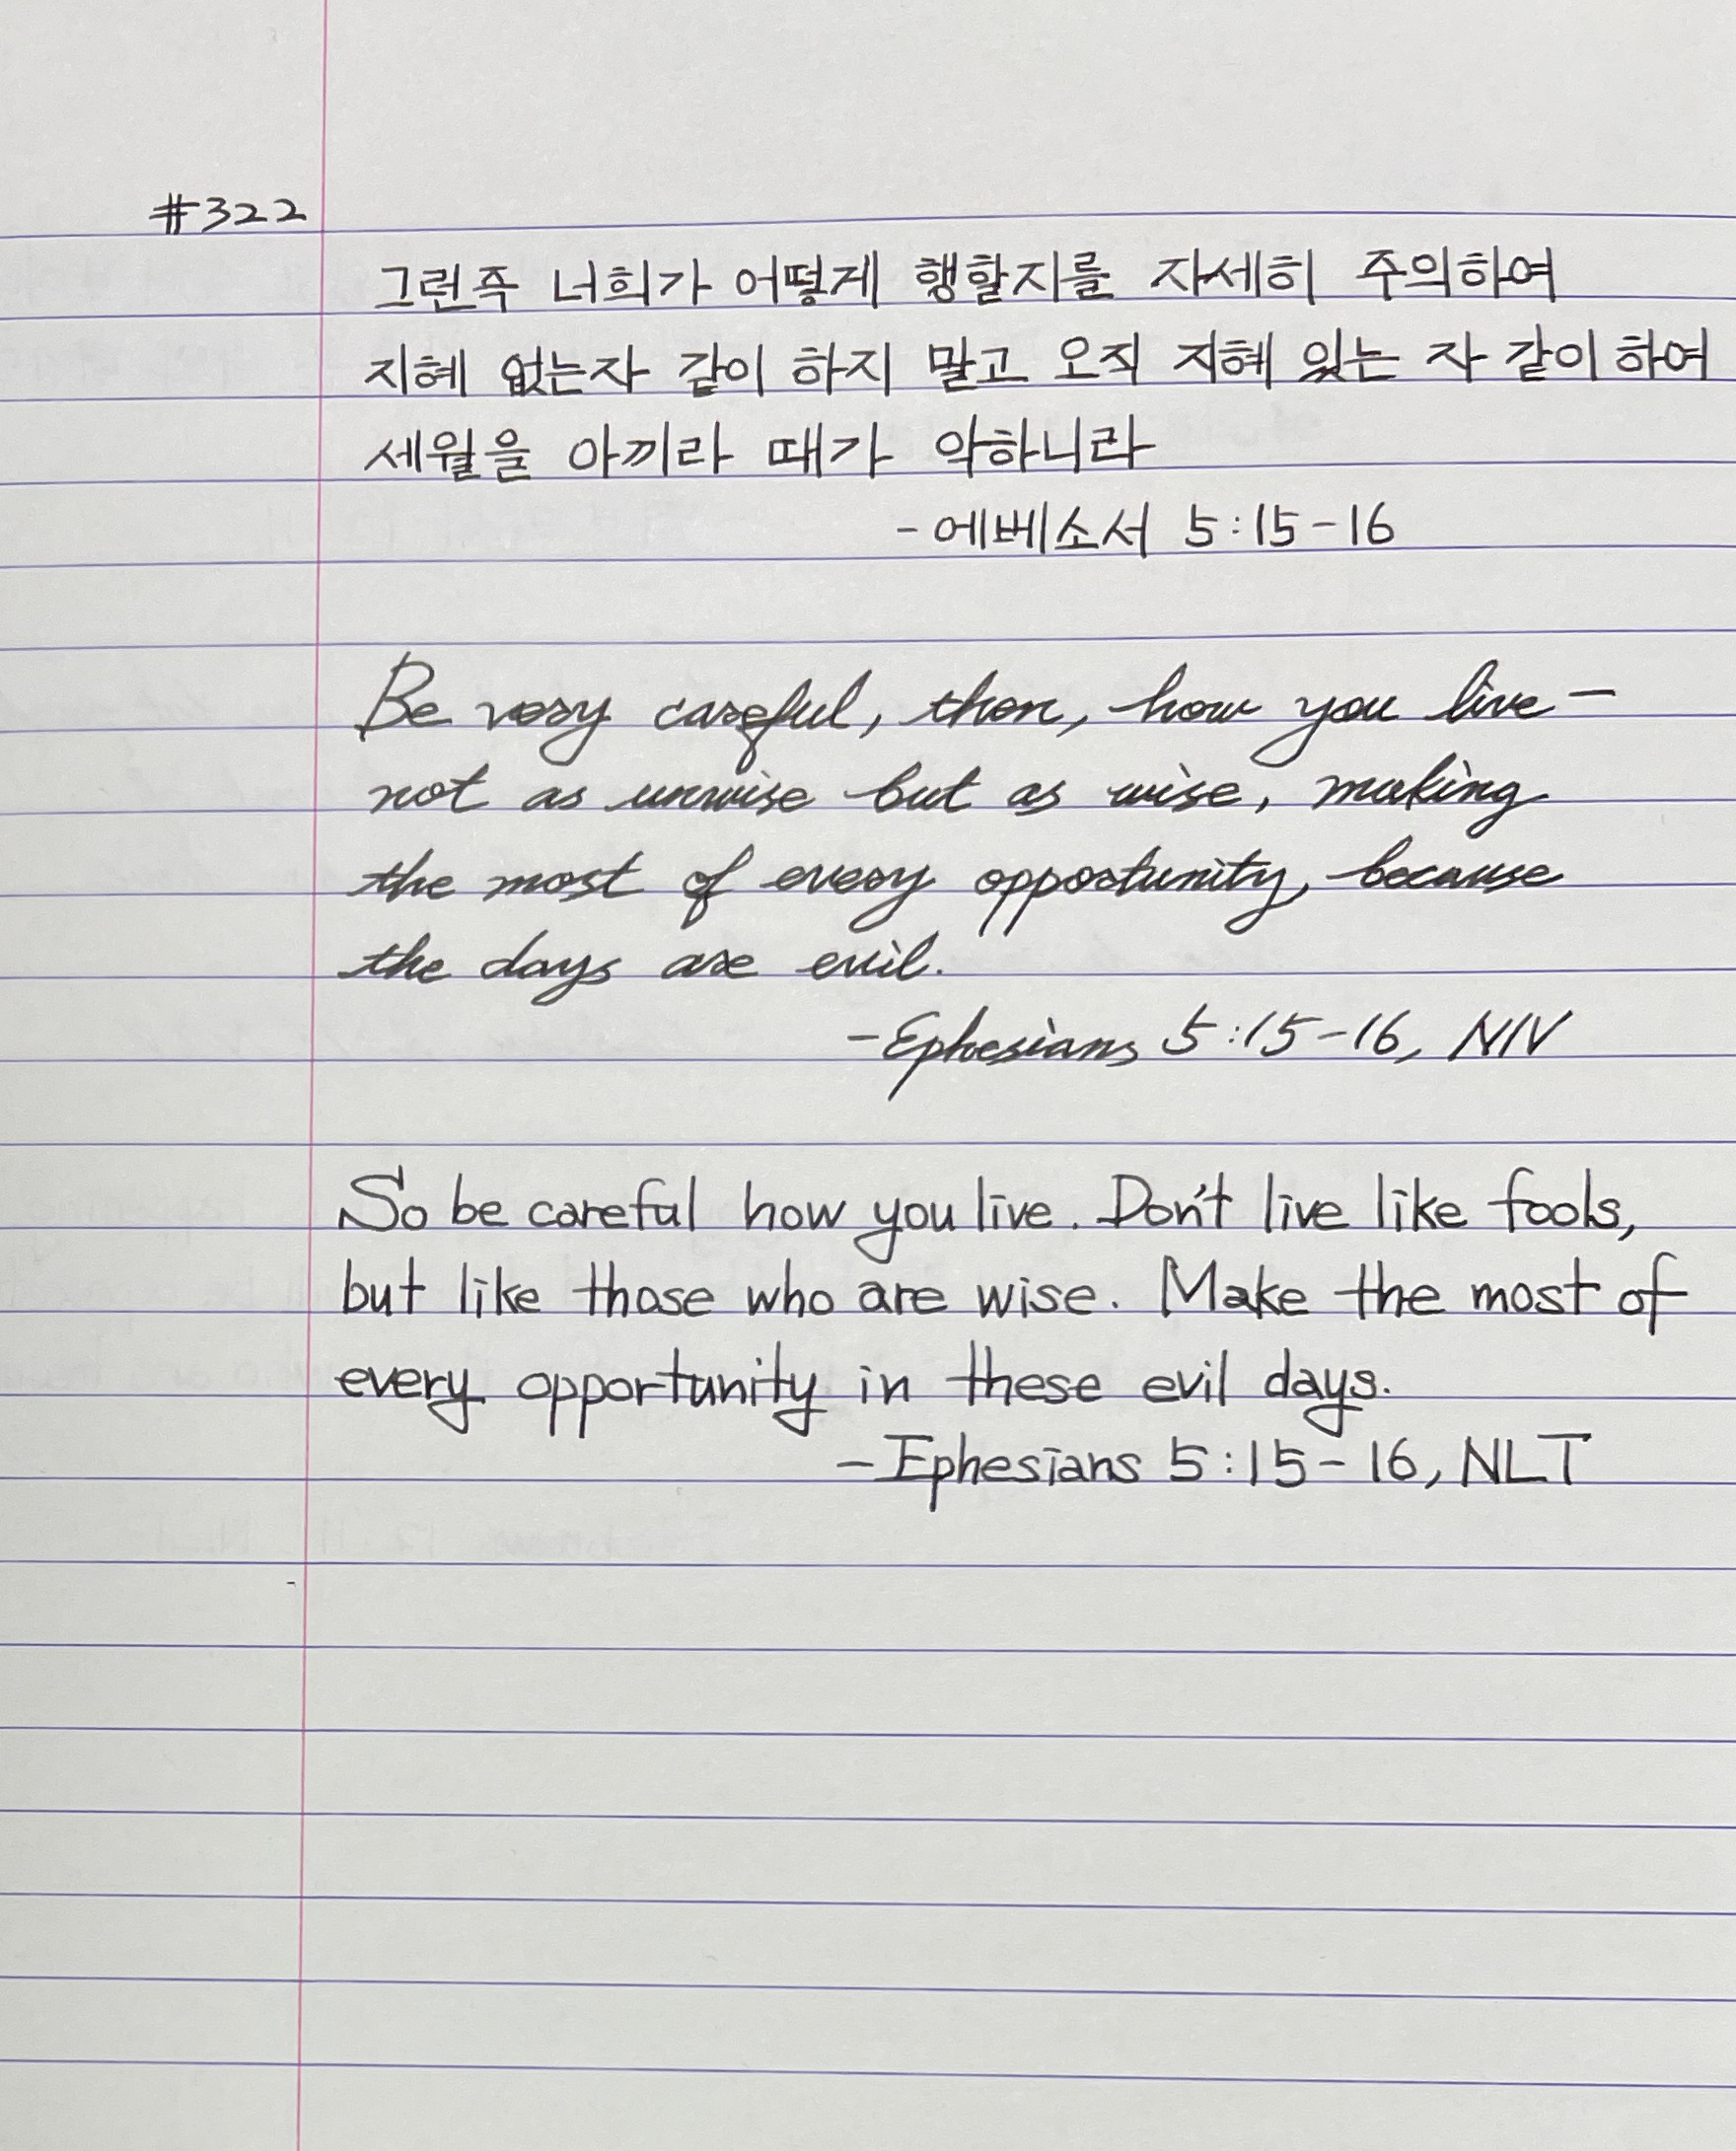 #322
그런즉 너희가 어떻게 행할지를 자세히 주의하여
지혜 없는자 같이 하지 말고 오직 지혜 있는 자 같이 하여
세월을 아끼라 때가 악하니라
- 에베소서 5:15-16
Be very careful, then, how you live -
not as unwise but as wise, making
the most of every opportunity, because
the days are evil.
- Ephesians 5:15-16, NIV
So be careful how you live. Don't live like fools,
but like those who are wise. Make the most of
every opportunity in these evil days.
- Ephesians 5:15-16, NLT